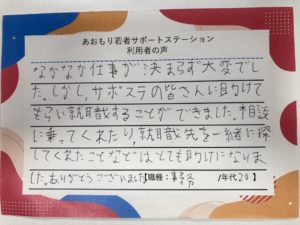 あおもり若者サポートステーション
利用者の声
なかなか仕事が決まらず大変でし
た。しかし、サポステの皆さんに助けて
もらい就職することができました。相談
に乗ってくれたり、就職先を一緒に探
してくれたことなどはとても助けになりま
した。ありがとうございました【職種：事務 年代20】